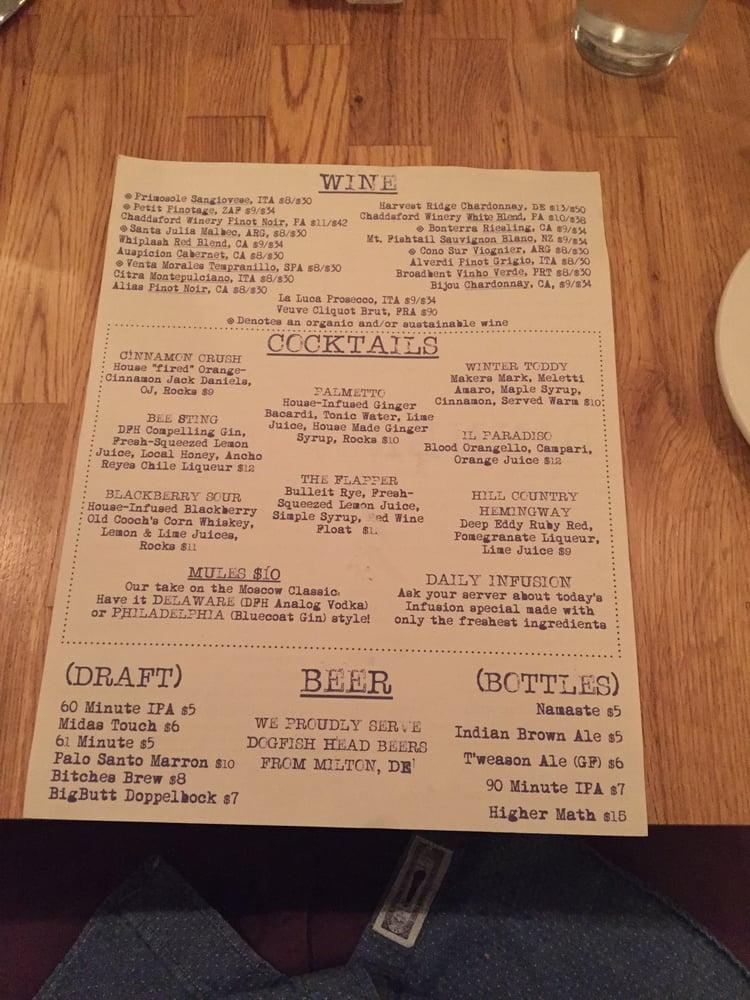 WINE
⊛ Primosole Sangiovese, ITA $8/$30
⊛ Petit Pinotage, ZAF $9/$34
Chaddsford Winery Pinot Noir, PA $11/$42
⊛ Santa Julia Malbec, ARG, $8/$30
Whiplash Red Blend, CA $9/$34
Auspicion Cabernet, CA $8/$30
⊛ Venta Morales Tempranillo, SPA $8/$30
Citra Montepulciano, ITA $8/$30
Alias Pinot Noir, CA $8/$30
Harvest Ridge Chardonnay, DE $13/$50
Chaddsford Winery White Blend, PA $10/$38
⊛ Bonterra Riesling, CA $9/$34
Mt. Fishtail Sauvignon Blanc, NZ $9/$34
⊛ Cono Sur Viognier, ARG $8/$30
Alverdi Pinot Grigio, ITA $8/$30
Broadbent Vinho Verde, PRT $8/$30
Bijou Chardonnay, CA, $9/$34
La Luca Prosecco, ITA $9/$34
Veuve Cliquot Brut, FRA $90
⊛ Denotes an organic and/or sustainable wine
COCKTAILS
CINNAMON CRUSH
House "fired" Orange-
Cinnamon Jack Daniels,
OJ, Rocks $9
BEE STING
DFH Compelling Gin,
Fresh-Squeezed Lemon
Juice, Local Honey, Ancho
Reyes Chile Liqueur $12
BLACKBERRY SOUR
House-Infused Blackberry
Old Cooch's Corn Whiskey,
Lemon & Lime Juices,
Rocks $11
PALMETTO
House-Infused Ginger
Bacardi, Tonic Water, Lime
Juice, House Made Ginger
Syrup, Rocks $10
THE FLAPPER
Bulleit Rye, Fresh-
Squeezed Lemon Juice,
Simple Syrup, Red Wine
Float
WINTER TODDY
Makers Mark, Meletti
Amaro, Maple Syrup,
Cinnamon, Served Warm $10
IL PARADISO
Blood Orangello, Campari,
Orange Juice $12
HILL COUNTRY
HEMINGWAY
Deep Eddy Ruby Red,
Pomegranate Liqueur,
Lime Juice $9
MULES $10
Our take on the Moscow Classic.
Have it DELAWARE (DFH Analog Vodka)
or PHILADELPHIA (Bluecoat Gin) style!
DAILY INFUSION
Ask your server about today's
Infusion special made with
only the freshest ingredients
(DRAFT)
60 Minute IPA $5
Midas Touch $6
61 Minute $5
Palo Santo Marron $10
Bitches Brew $8
BigButt Doppelbock $7
BEER
WE PROUDLY SERVE
DOGFISH HEAD BEERS
FROM MILTON, DE!
(BOTTLES)
Namaste $5
Indian Brown Ale $5
T'weason Ale (GF) $6
90 Minute IPA $7
Higher Math $15